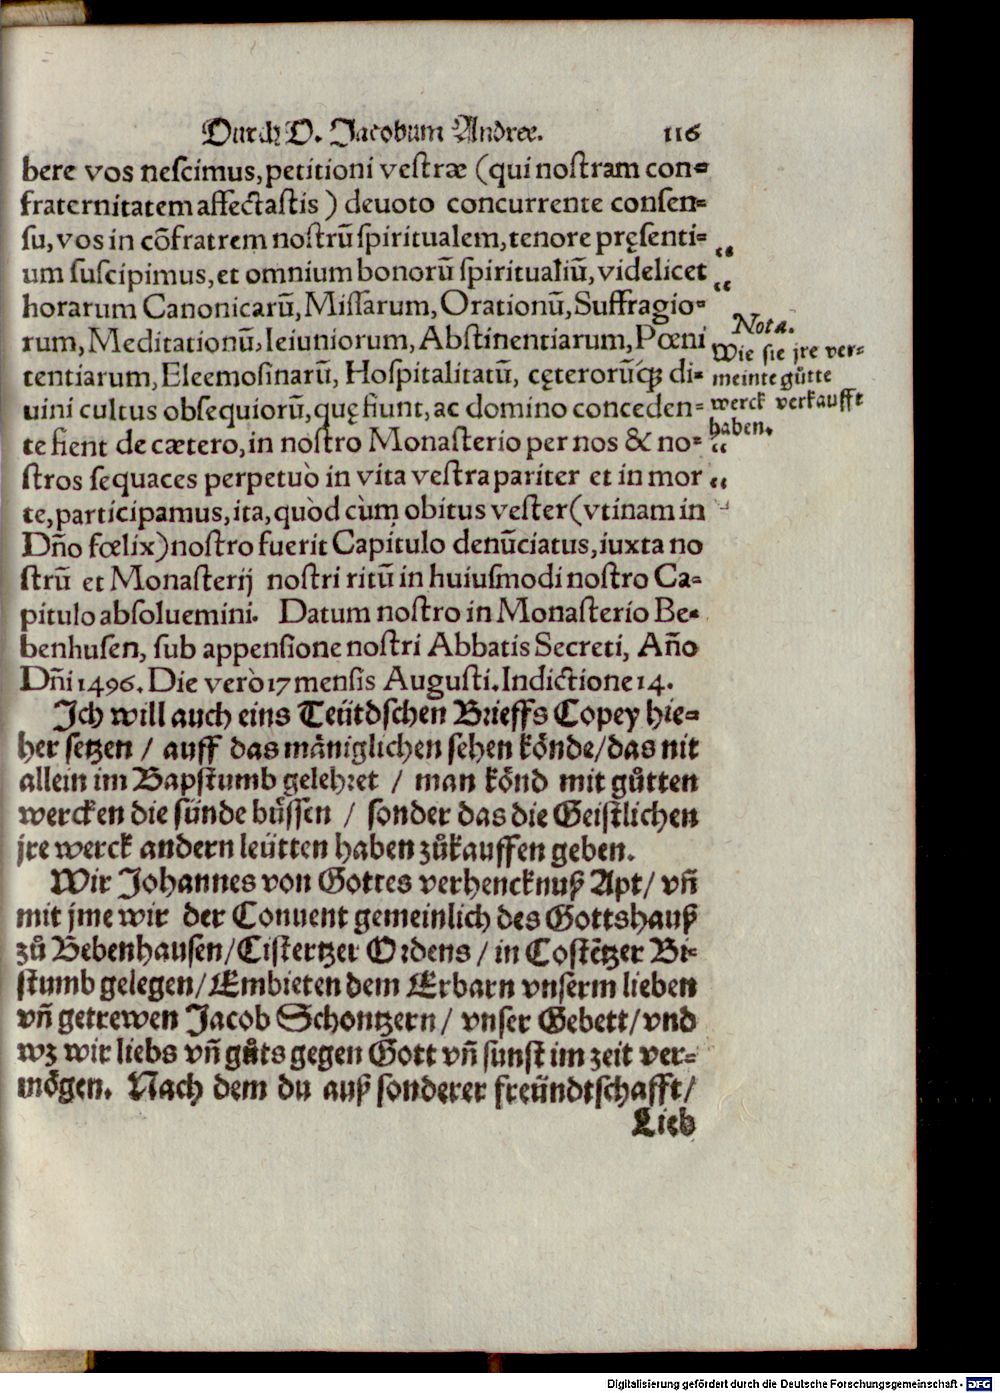 Durch D. Jacobum Andree. 116
bere vos nescimus, petitioni vestræ (qui nostram con⸗
fraternitatem affectastis) deuoto concurrente consen⸗
su, vos in cõfratrem nostrũ spiritualem, tenore pręsenti⸗
um suscipimus, et omnium bonorũ spiritualiũ, videlicet
horarum Canonicarũ, Missarum, Orationũ, Suffragio⸗
rum, Meditationũ, Ieiuniorum, Abstinentiarum, Pœni
tentiarum, Eleemosinarũ, Hospitalitatũ, cęterorũq́ꝫ di⸗
uini cultus obsequiorũ, quę fiunt, ac domino conceden⸗
te fient de cætero, in nostro Monasterio per nos & no⸗
stros sequaces perpetuò in vita vestra pariter et in mor
te, participamus, ita, quòd cùm obitus vester (vtinam in
Dño fœlix) nostro fuerit Capitulo denũciatus, iuxta no
strũ et Monasterij nostri ritũ in huiusmodi nostro Ca⸗
pitulo absoluemini. Datum nostro in Monasterio Be⸗
benhusen, sub appensione nostri Abbatis Secreti, Año
Dñi 1496. Die verò 17 mensis Augusti. Indictione 14.
Nota.
Wie sie jre ver⸗
meinte gůtte
werck verkaufft
haben.
Ich will auch eins Teütdschen Brieffs Copey hie⸗
her setzen / auff das mäniglichen sehen könde / das nit
allein im Bapstumb gelehret / man könd mit gůtten
wercken die sünde büssen / sonder das die Geistlichen
jre werck andern leütten haben zůkauffen geben.
Wir Johannes von Gottes verhencknuß Apt / vñ
mit jme wir der Conuent gemeinlich des Gottshauß
zů Bebenhausen / Cistertzer Ordens / in Costẽtzer Bi⸗
stumb gelegen / Embieten dem Erbarn vnserm lieben
vñ getrewen Jacob Schontzern / vnser Gebett / vnd
wz wir liebs vñ gůts gegen Gott vñ sunst im zeit ver⸗
mögen. Nach dem du auß sonderer freündtschafft /
Lieb
Digitalisierung gefördert durch die Deutsche Forschungsgemeinschaft - DFG